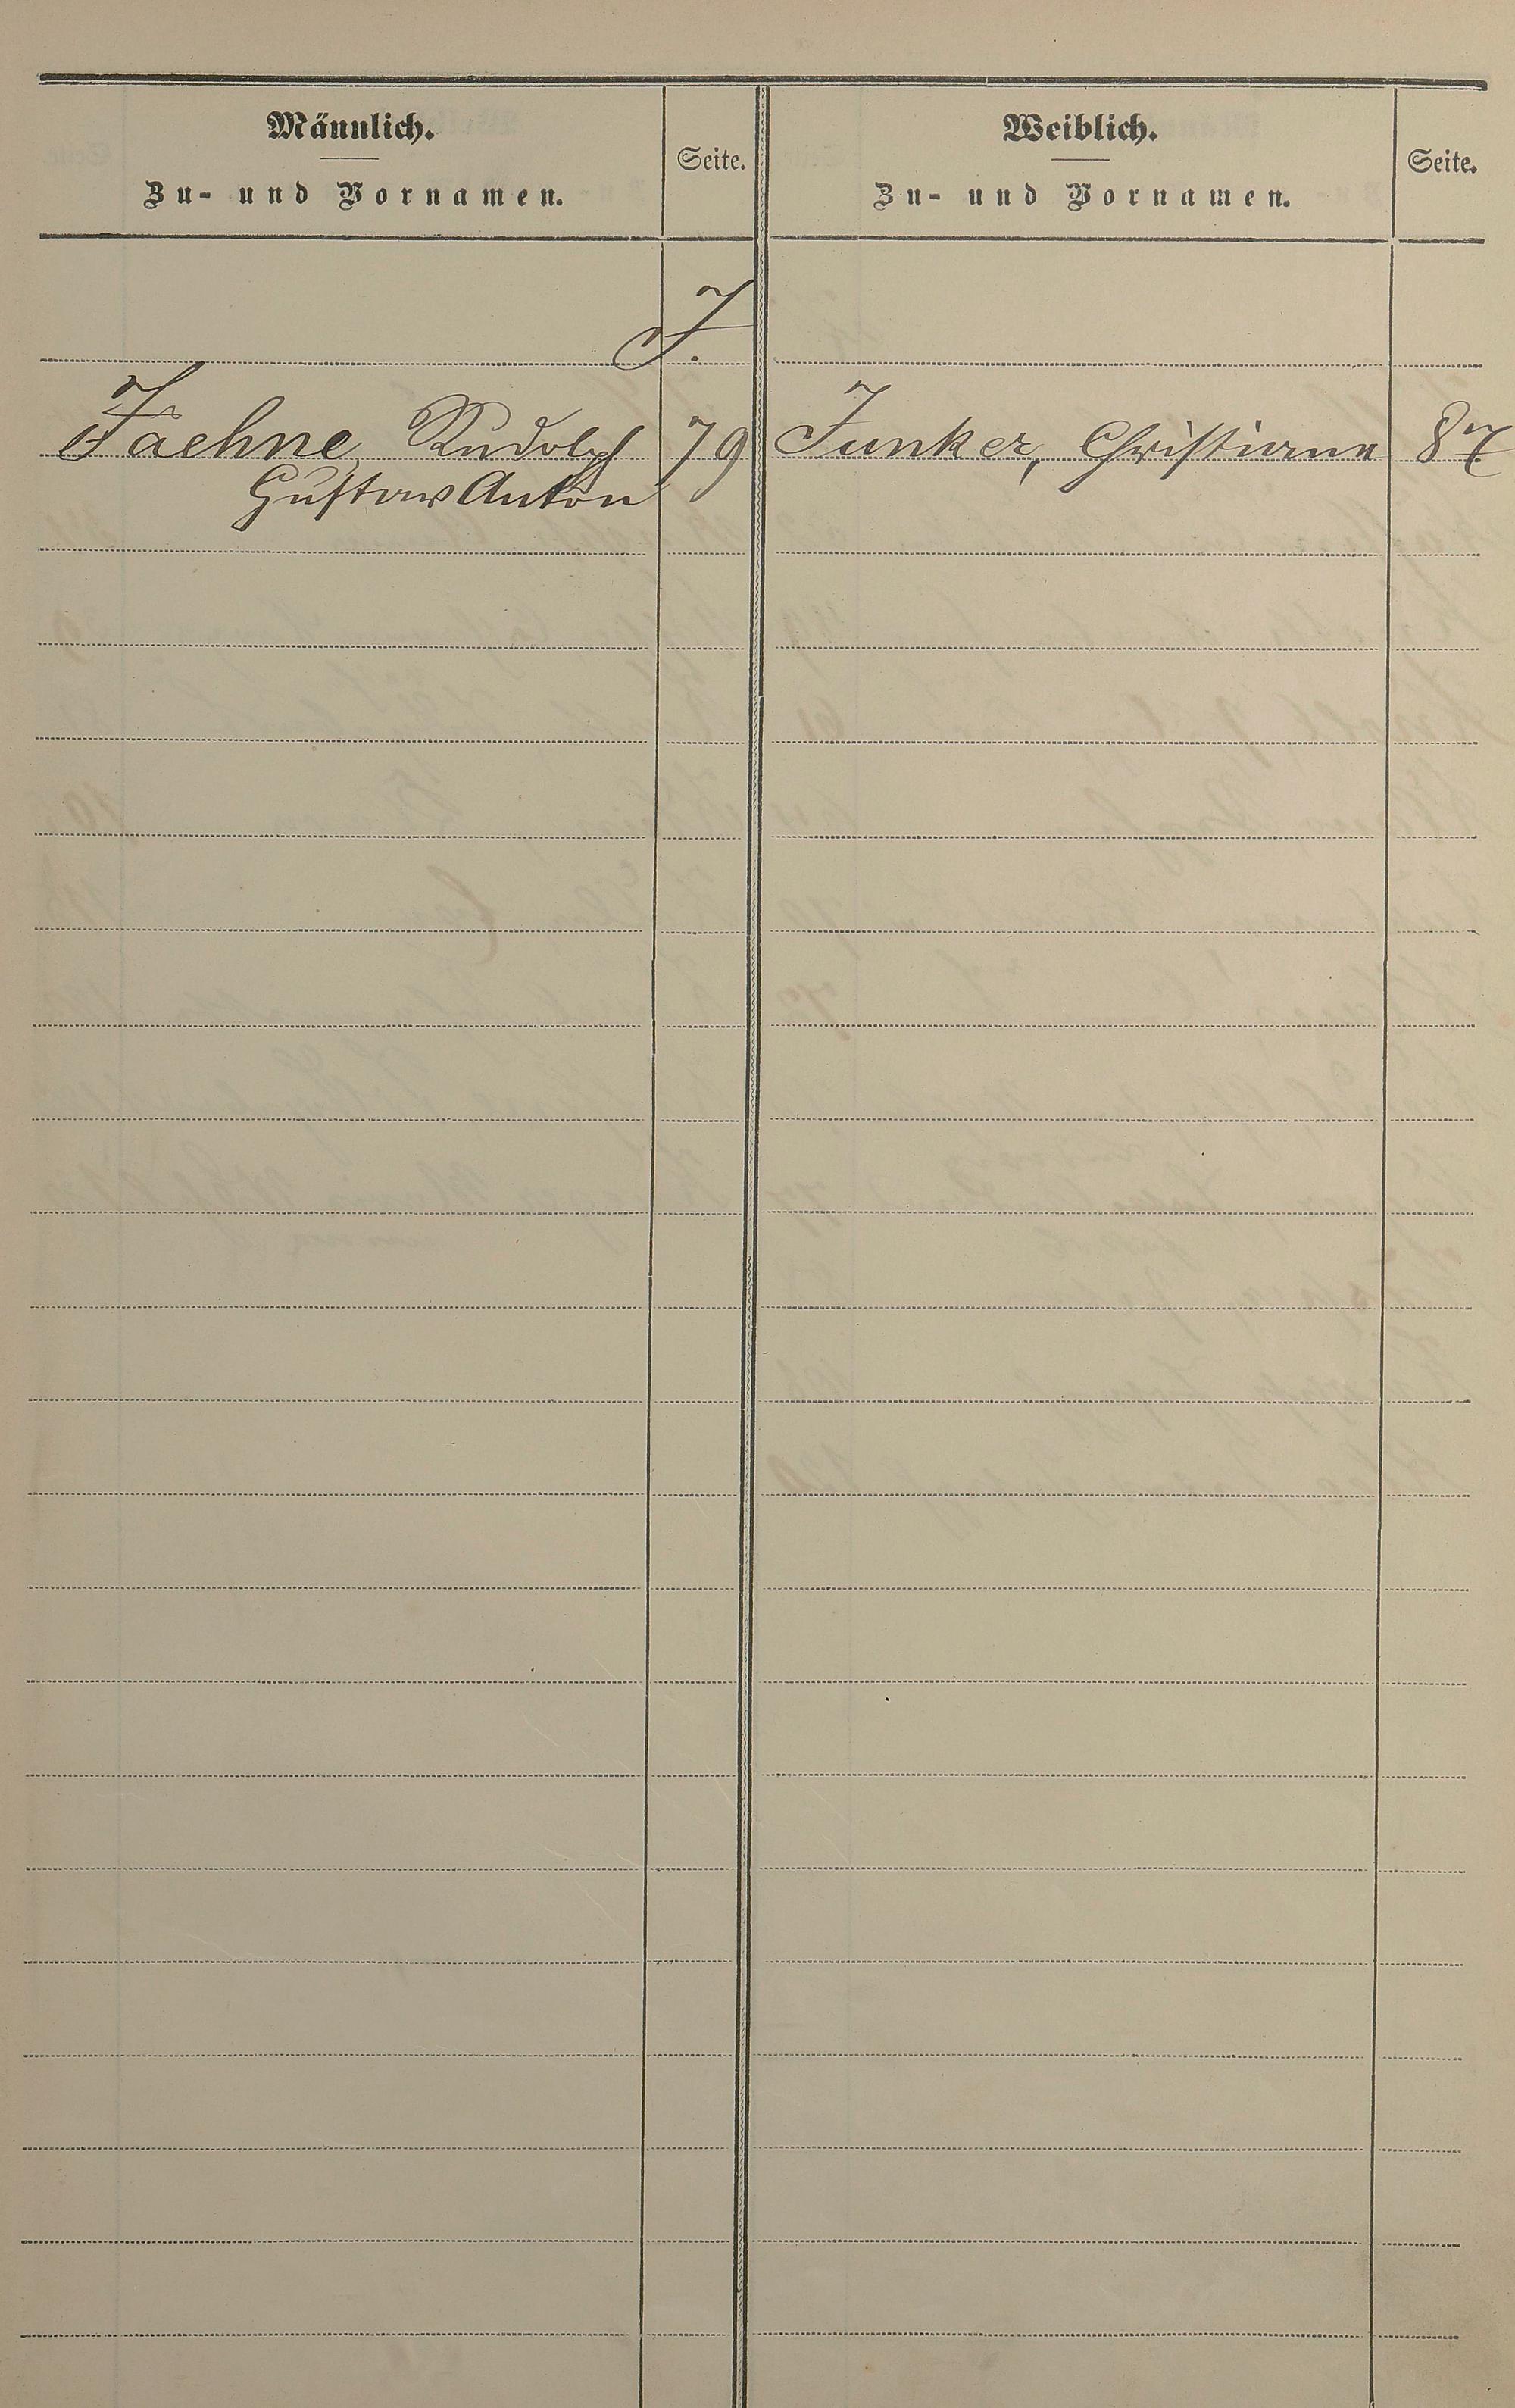 Männlich.
Zu- und Vornamen.
Seite.
Weiblich.
Zu- und Vornamen.
Seite.
J.
Jaehne, Rudolph 79
Gustav Anton
Junker, Christiane 87